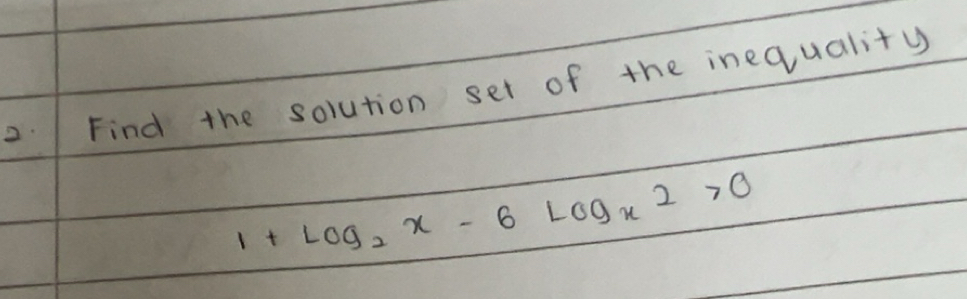 2. Find the solution set of the inequality
1 + Log₂ x - 6 Logₓ 2 > 0